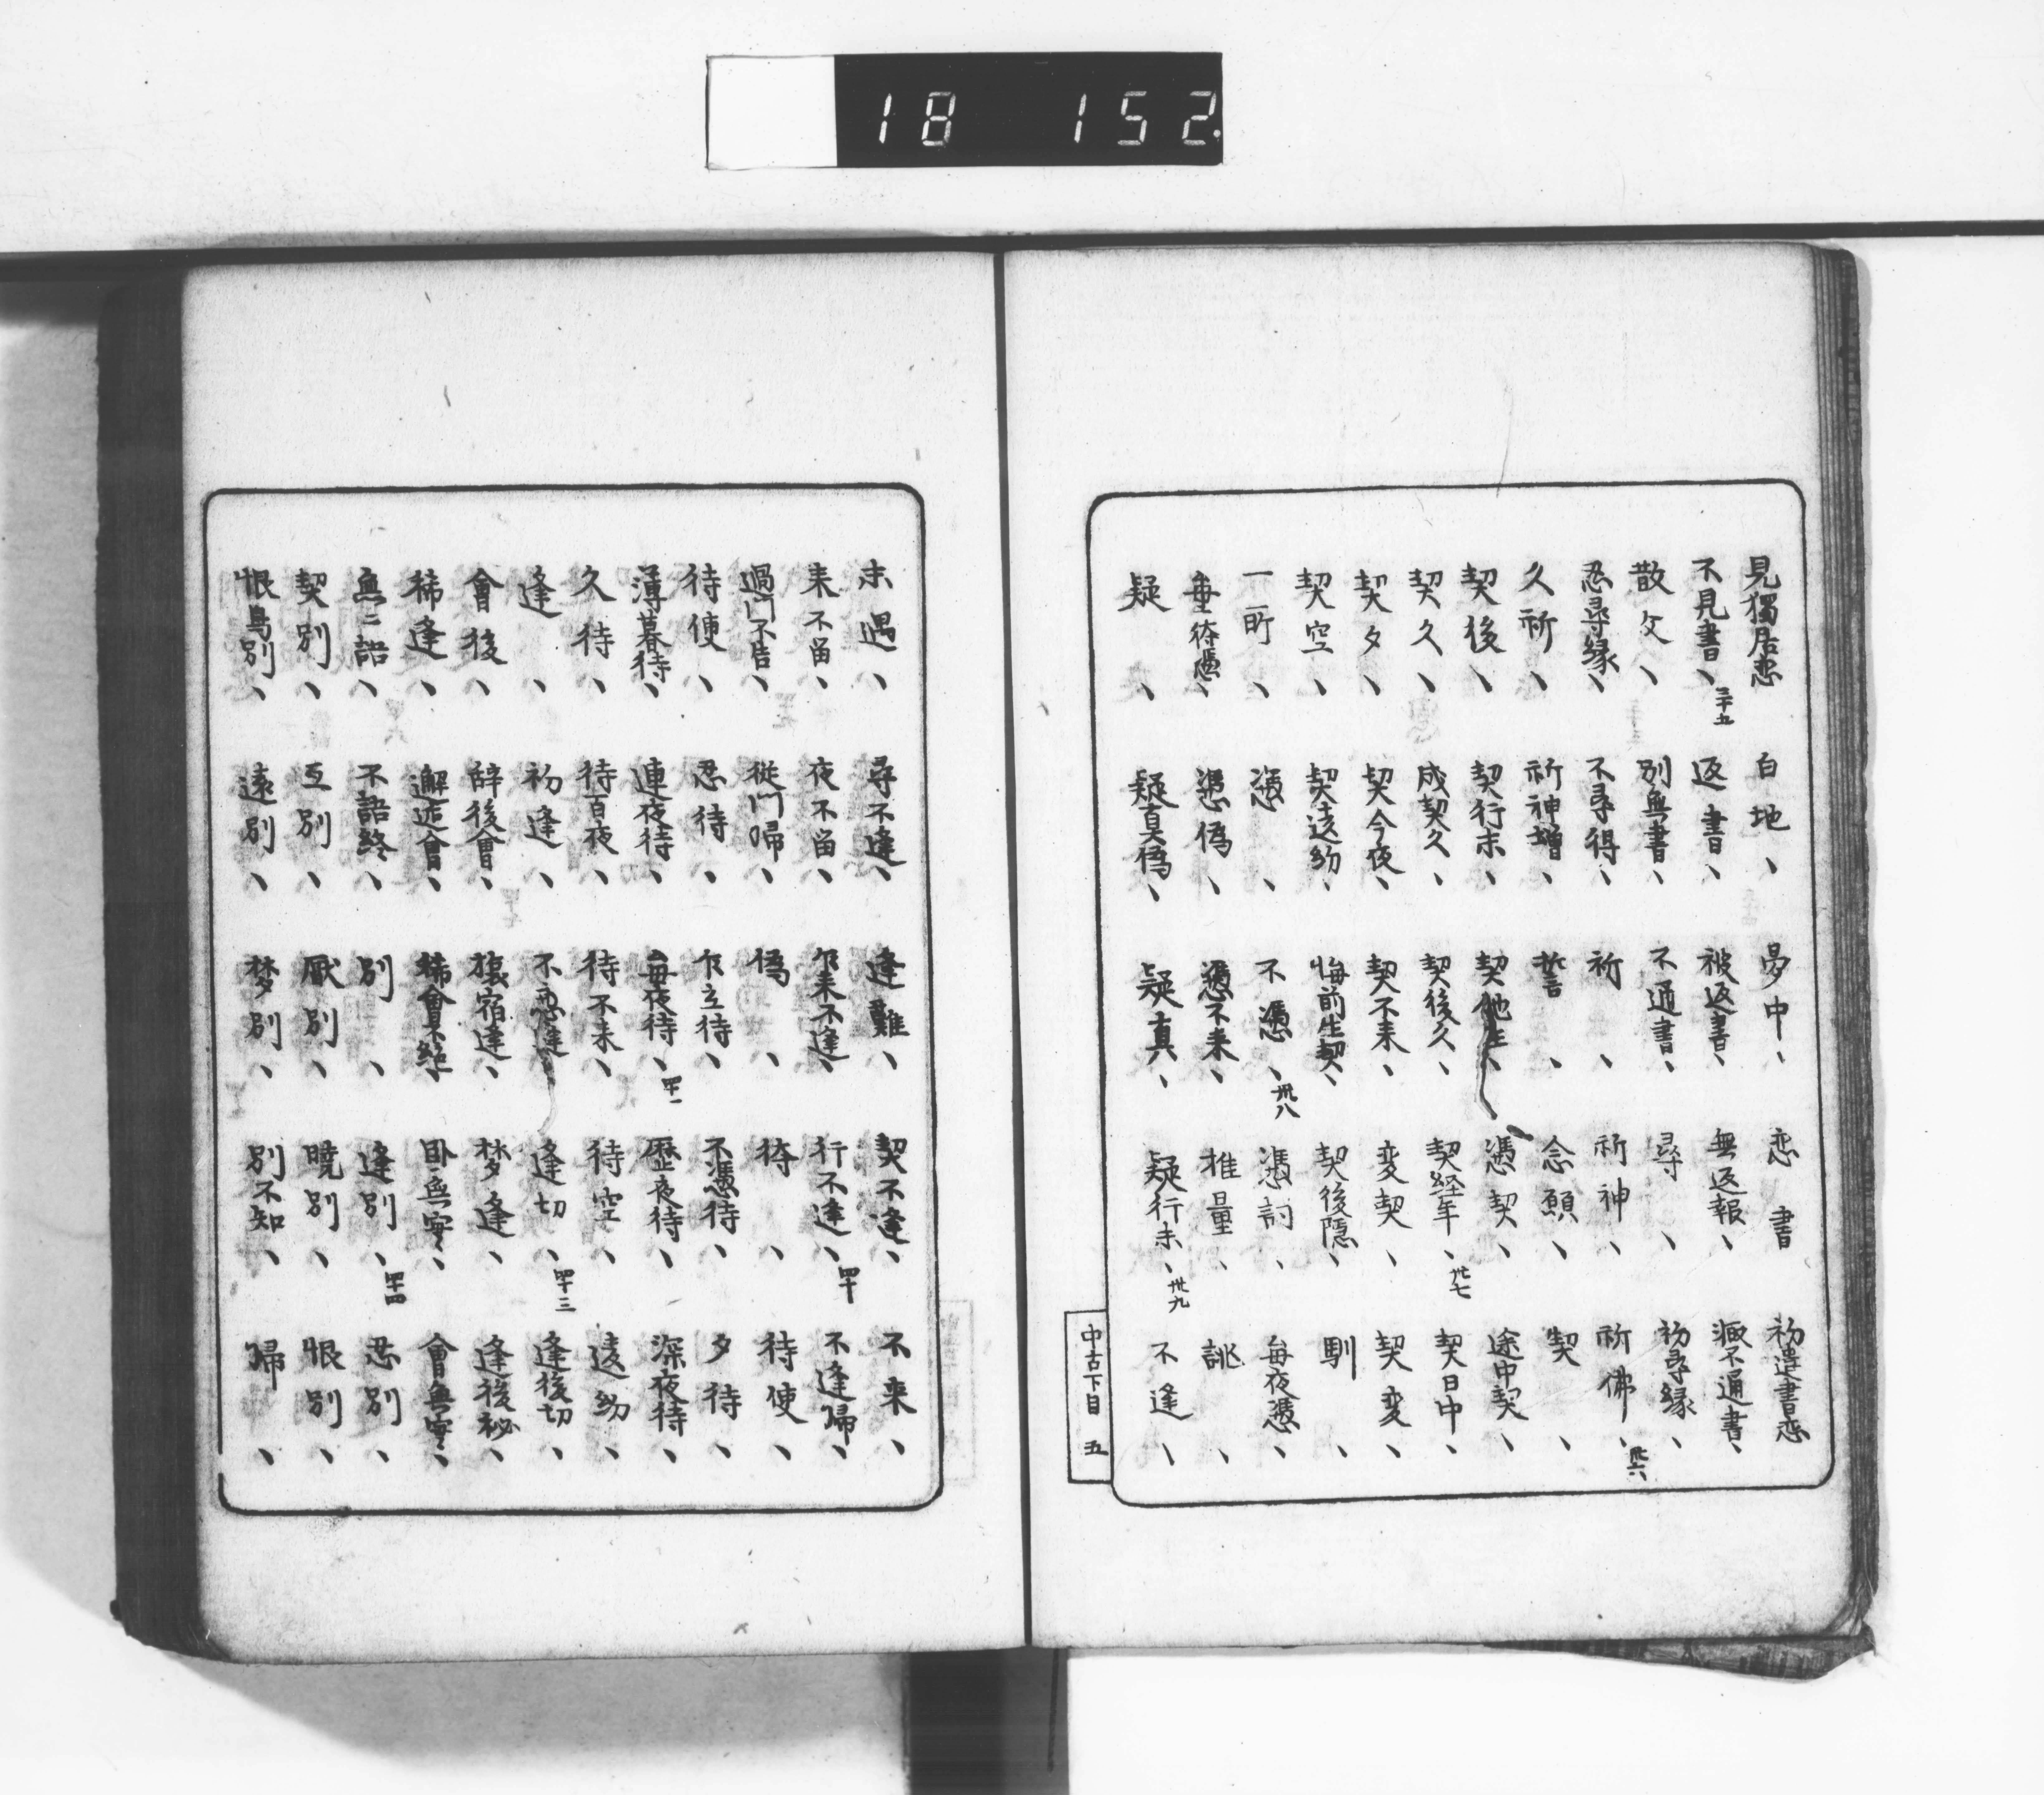 18 152.
見獨居恋 白地、 夢中、 恋書 初遣書恋
不見書、三十五 返書、 被返書、 無返報、 返不通書、
散文、 別無書、 不通書、 尋、 初尋縁、
忍尋縁、 不尋得、 祈、 祈神、 祈佛、卅六
久祈、 祈神増、 誓、 念願、 契、
契後、 契行末、 契他生、 憑契、 途中契、
契久、 成契久、 契後久、 契経年、卅七 契日中、
契夕、 契今夜、 契不来、 変契、 契変、
契空、 契違約、 悔前生契、 契後隠、 馴、
一所、 憑、 不憑、卅八 憑詞、 毎夜憑、
憑、 憑偽、 憑不来、 推量、 誂、
疑、 疑真偽、 疑真、 疑行末、卅九 不逢、
中古下目 五
未遇、 尋不逢、 逢難、 契不逢、 不来、
来不留、 夜不留、 乍来不逢、 行不逢、四十 不逢帰、
過門不告、 従門帰、 偽、 待、 待使、
待使、 忍待、 乍立待、 不憑待、 夕待、
薄暮待、 連夜待、 毎夜待、四十一 歴夜待、 深夜待、
久待、 待百夜、 待不来、 待空、 違約、
逢、 初逢、 不逢、 逢切、四十三 逢後切、
會後、 辞後會、 旅宿逢、 梦逢、 逢後祕、
稀逢、 邂逅會、 稀會不絶、 臥無実、 會無実、
無二語、 不語終、 別、 逢別、四十四 忍別、
契別、 互別、 厭別、 暁別、 恨別、
恨鳥別、 遠別、 梦別、 別不知、 帰、